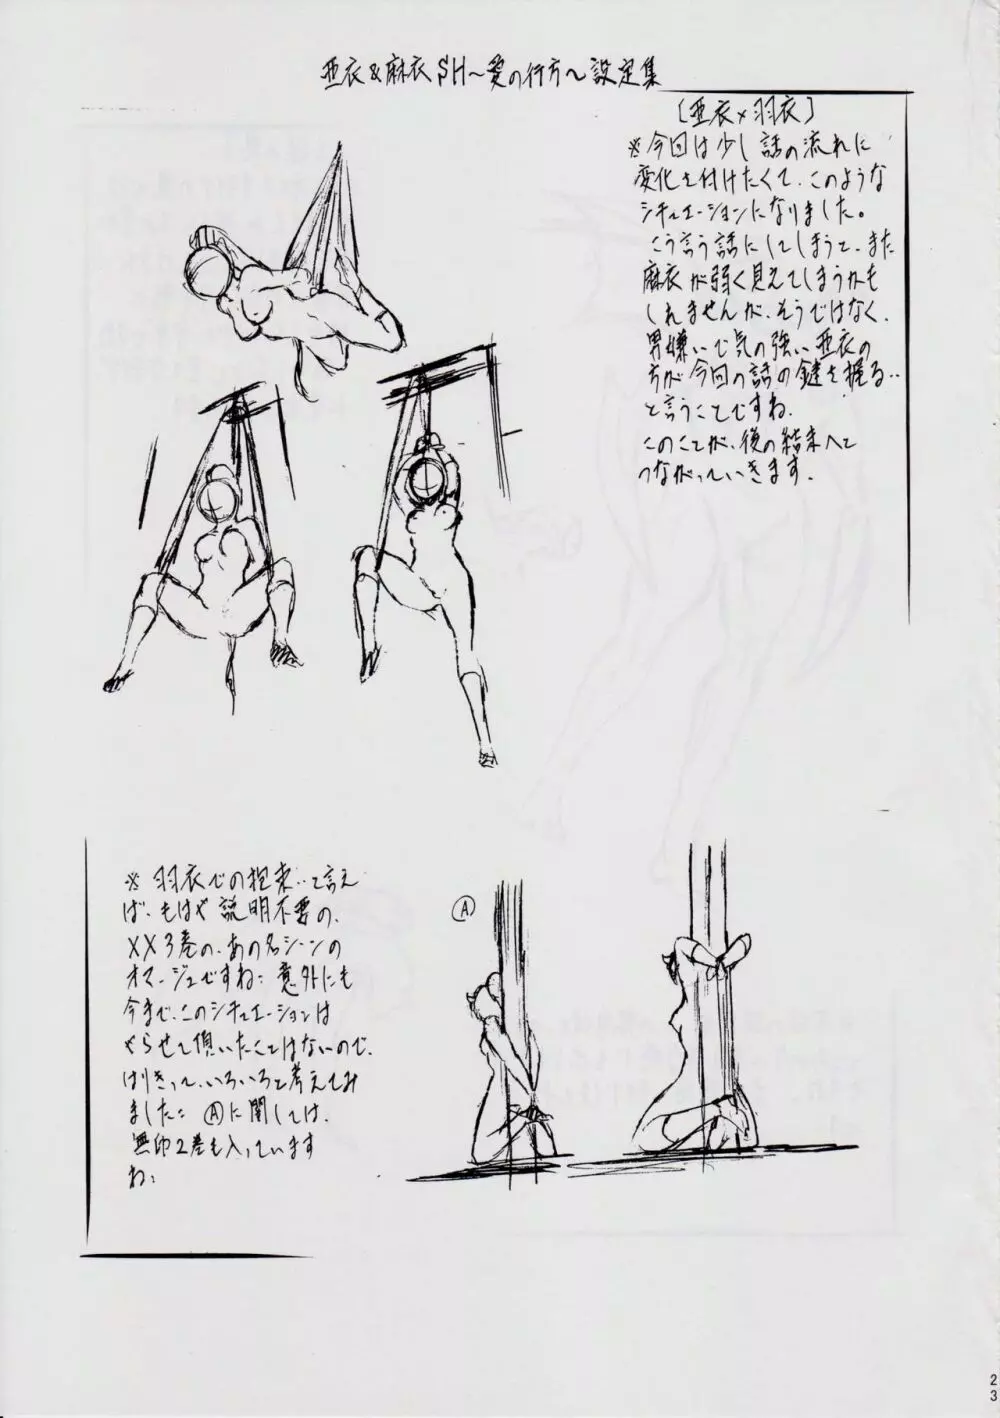 亜衣&麻衣SH〜愛の行方〜設定集
［亜衣×羽衣］
※今回は少し話の流れに
変化を付けたくて、このような
シチュエーションになりました。
こう言う話にしてしまうと、また
麻衣が弱く見えてしまうかも
しれませんが、そうではなく、
男嫌いで気の強い亜衣の
方が今回の話の鍵を握る‥
と言うことですね。
このことが、後の結末へと
つながっていきます。
※羽衣での拘束‥と言え
ば、もはや説明不要の、
XX3巻の、あの名シーンの
オマージュですね：意外にも
今まで、このシチュエーションは
やらせて頂いたことはないので、
はりきって、いろいろと考えてみ
ました：Ⓐに関しては、
無印2巻も入っています
ね：
Ⓐ
23